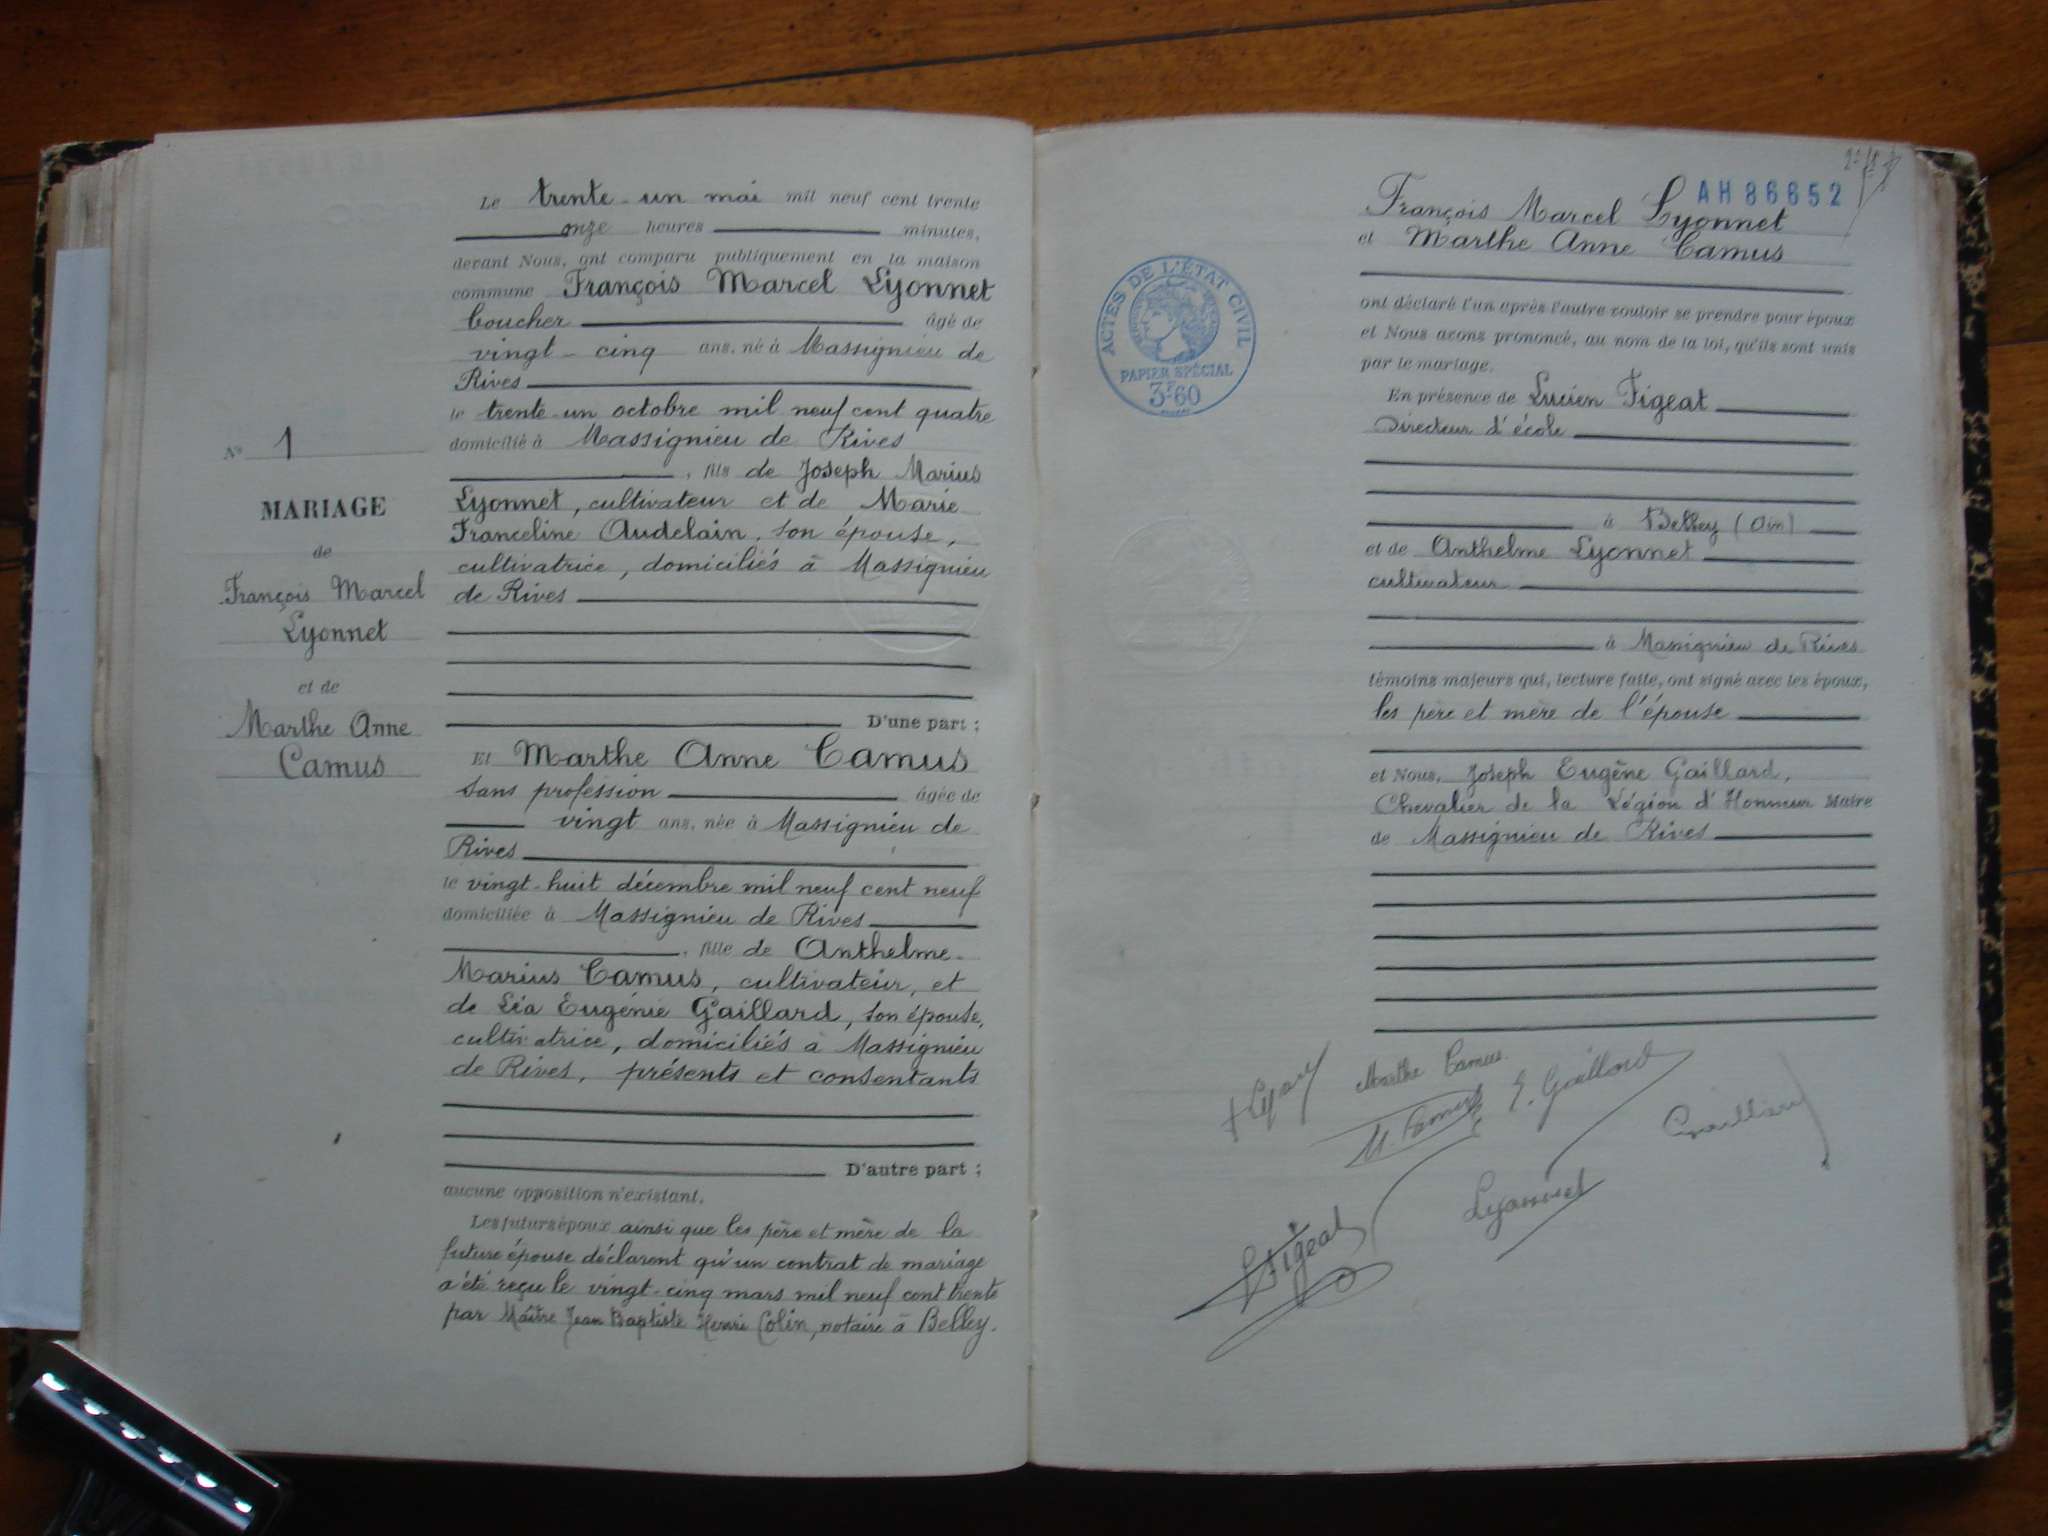 Le trente-un mai mil neuf cent trente
onze heures minutes,
devant Nous, ont comparu publiquement en la maison
commune François Marcel Lyonnet
boucher âgé de
vingt-cinq ans, né à Massignieu de
Rives
le trente-un octobre mil neuf cent quatre
domicilié à Massignieu de Rives
, fils de Joseph Marius
Lyonnet, cultivateur et de Marie
Franceline Audelain, son épouse,
cultivatrice, domiciliés à Massignieu
de Rives
D'une part ;
Et Marthe Anne Camus
sans profession âgée de
vingt ans, née à Massignieu de
Rives
le vingt-huit décembre mil neuf cent neuf
domiciliée à Massignieu de Rives
, fille de Anthelme
Marius Camus, cultivateur, et
de Léa Eugénie Gaillard, son épouse,
cultivatrice, domiciliés à Massignieu
de Rives, présents et consentants
D'autre part ;
aucune opposition n'existant.
Les futurs époux ainsi que les père et mère de la
future épouse déclarent qu'un contrat de mariage
a été reçu le vingt-cinq mars mil neuf cent trente
par Maître Jean Baptiste Henri Colin, notaire à Belley.
N° 1
MARIAGE
de
François Marcel
Lyonnet
et de
Marthe Anne
Camus
AH 86652
François Marcel Lyonnet
et Marthe Anne Camus
ACTES DE L'ÉTAT CIVIL
PAPIER SPÉCIAL
3F60
ont déclaré l'un après l'autre vouloir se prendre pour époux
et Nous avons prononcé, au nom de la loi, qu'ils sont unis
par le mariage.
En présence de Lucien Figeat
Directeur d'école
à Belley (Ain)
et de Anthelme Lyonnet
cultivateur
à Massignieu de Rives
témoins majeurs qui, lecture faite, ont signé avec les époux,
les père et mère de l'épouse
et Nous, Joseph Eugène Gaillard,
Chevalier de la Légion d'Honneur Maire
de Massignieu de Rives
Marthe Camus.
M. Camus E. Gaillard
Gaillard
Lyonnet
L Figeat